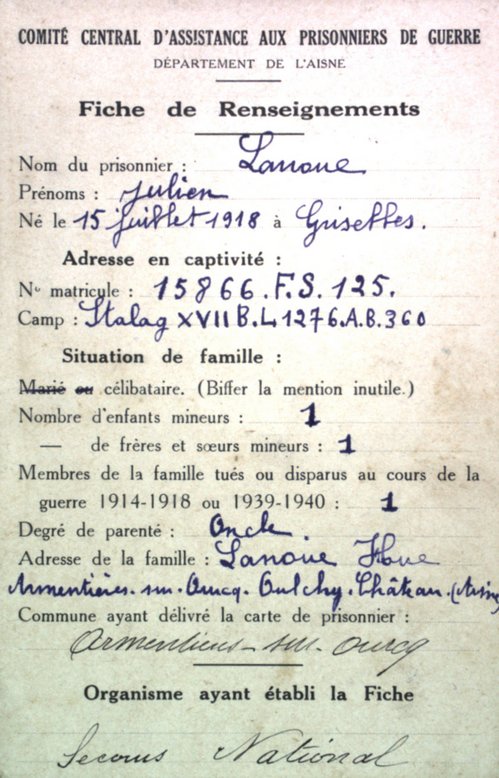 COMITÉ CENTRAL D'ASSISTANCE AUX PRISONNIERS DE GUERRE
DÉPARTEMENT DE L'AISNE
Fiche de Renseignements
Nom du prisonnier : Lanoue
Prénoms : Julien
Né le 15 juillet 1918 à Griselles.
Adresse en captivité :
No matricule : 15866.F.S.125.
Camp : Stalag XVII B.L1276.A.B.360
Situation de famille :
Marié ou célibataire. (Biffer la mention inutile.)
Nombre d'enfants mineurs : 1
— de frères et sœurs mineurs : 1
Membres de la famille tués ou disparus au cours de la
guerre 1914-1918 ou 1939-1940 : 1
Degré de parenté : Oncle
Adresse de la famille : Lanoue
Armentières-sur-Ourcq. Oulchy. Château. (Aisne)
Commune ayant délivré la carte de prisonnier :
Armentières-sur-Ourcq
Organisme ayant établi la Fiche
Secours National